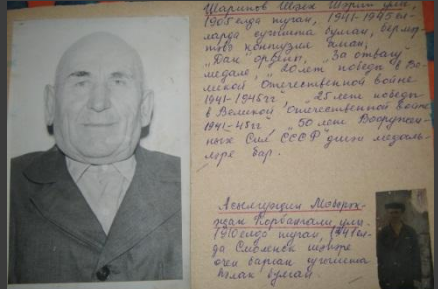 Шарипов Шәех Шәрип улы,
1905 елда туган, 1941-1945 ел-
ларда сугышта булган, бермә-
контузия алган,
"Дан" ордены, "За отвагу"
медале, "20 лет победа в Ве-
ликой Отечественной войне
1941-1945 гг", "25 лет победы
в Великой Отечественной войне
1941-45 гг", "50 лет Вооружен-
ных Сил СССР" дигән медаль-
ләре бар.
Асылгуҗин
Корбангали улы.
1910 елда туган, 1941 ел-
да Смоленск шәһәре
өчен барган сугышта
һәлак булган.